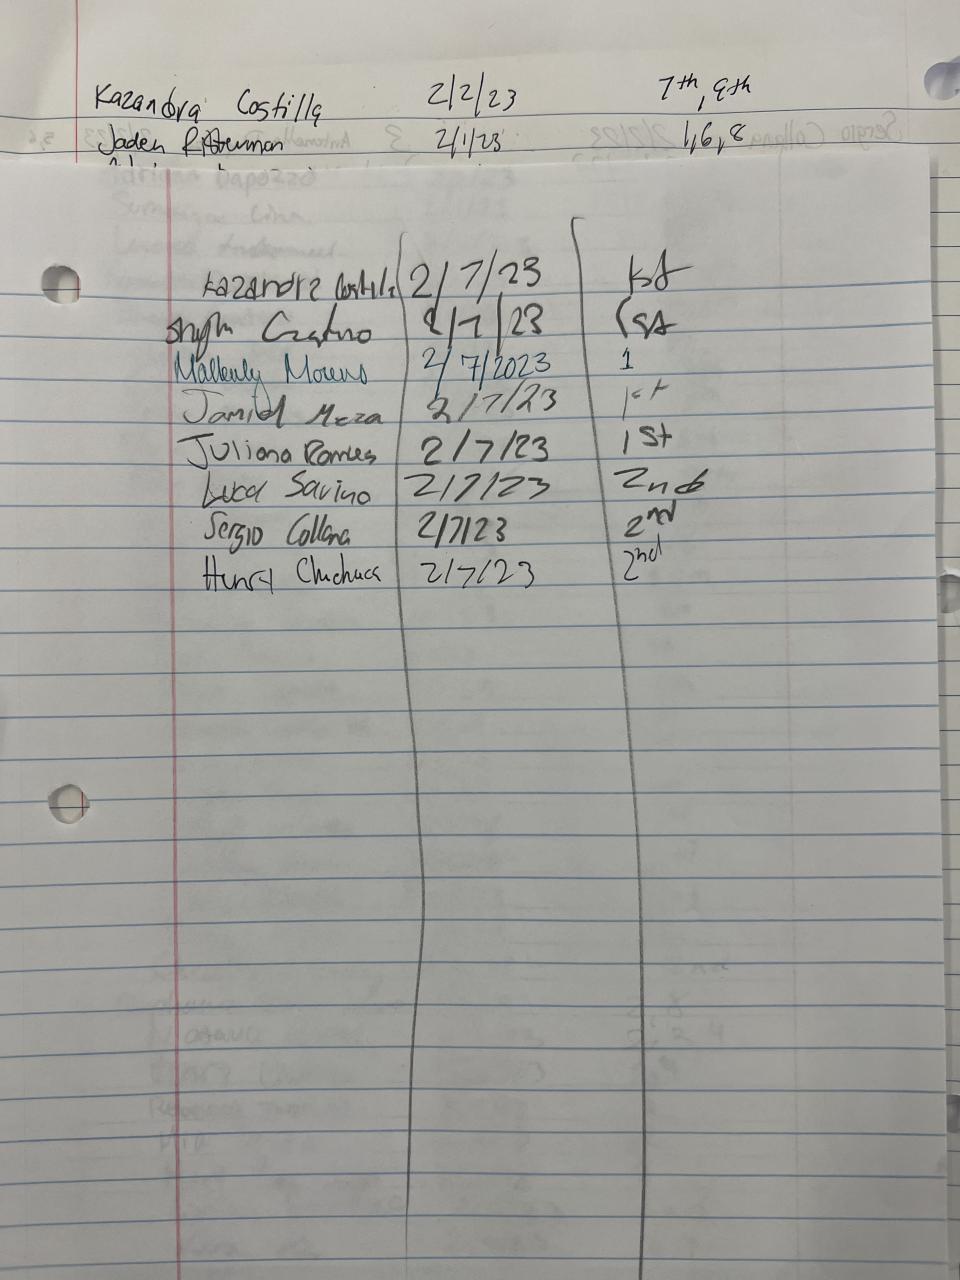 Kazandra Costilla 2/2/23 7th, 8th
Jaden 2/1/23 1,6,8
Kazandra Costilla 2/7/23 1st
2/7/23 1st
Mallenly Moreno 2/7/2023 1
Jamiel Meza 2/7/23 1st
Juliana 2/7/23 1st
Luca Savino 2/7/23 2nd
Sergio Collana 2/7/23 2nd
Henry Chuchuca 2/7/23 2nd